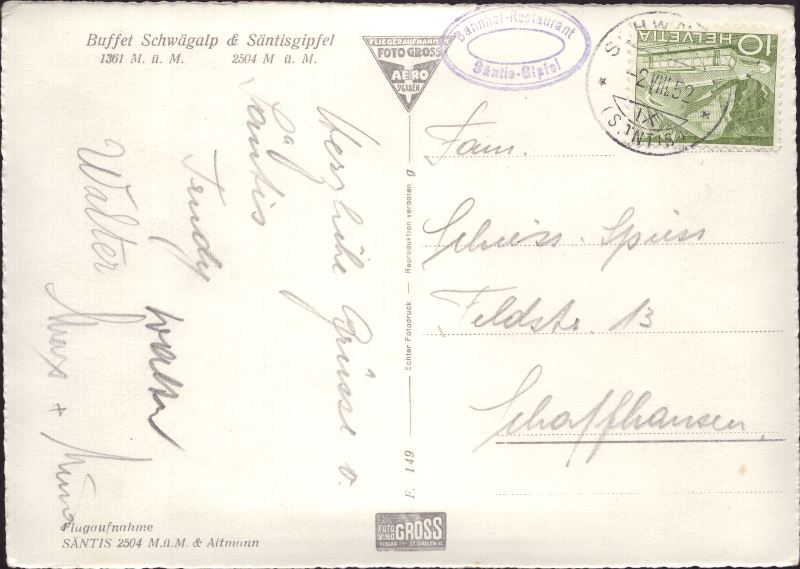 Buffet Schwägalp & Säntisgipfel
1361 M. ü. M. 2504 M. ü. M.
FLIEGERAUFNAHME
FOTO GROSS
AERO
ST. GALLEN
Bahnhof-Restaurant
Säntis-Gipfel
HELVETIA 10
-2.VIII.52
IX
(SÄNTIS)
Herzliche Grüsse v.
Säntis
Trudy
Walter
Walter
Max +
Fam.
Schiess-Spiess
Feldstr. 13
Schaffhausen.
F. 149 — Echter Fotodruck — Reproduktion verboten g
Flugaufnahme
SÄNTIS 2504 M.ü.M. & Altmann
FOTO GROSS
ST. GALLEN